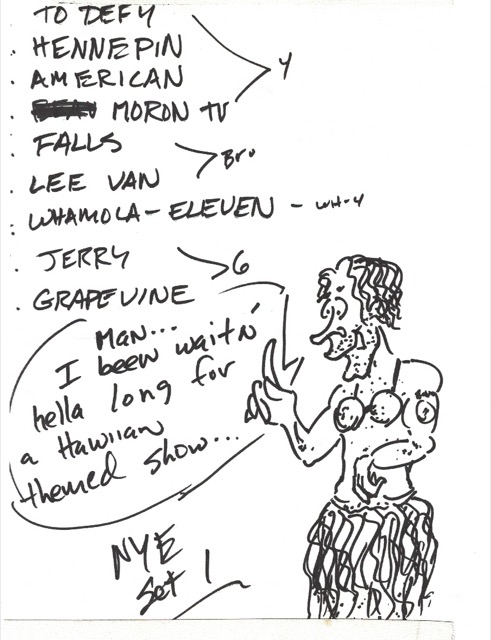 TO DEFY
HENNEPIN
AMERICAN
MORON TV
Y
FALLS
LEE VAN
Bru
WHAMOLA - ELEVEN - WH-Y
JERRY
GRAPEVINE
6
MAN...
I been waitn'
hella long for
a Hawiian
themed show...
NYE
Set 1